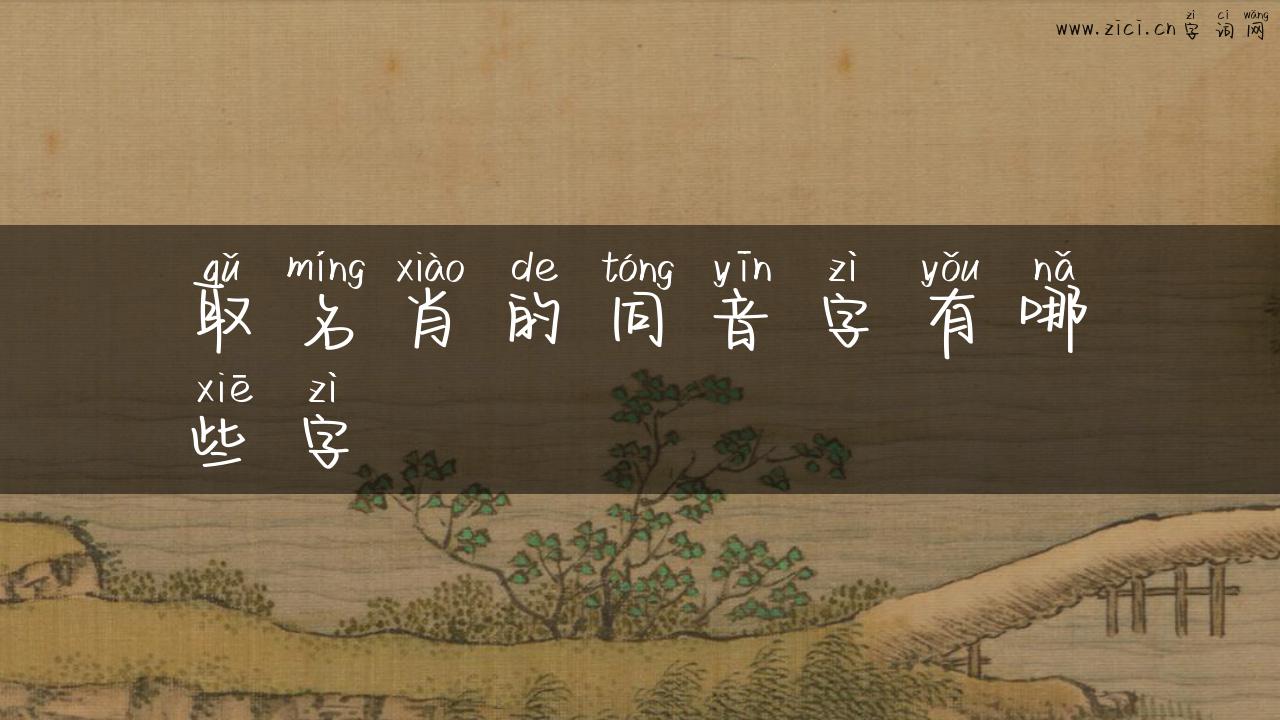 zì cí wǎng
www.zici.cn字词网
qǔ míng xiào de tóng yīn zì yǒu nǎ
取名肖的同音字有哪
xiē zì
些字